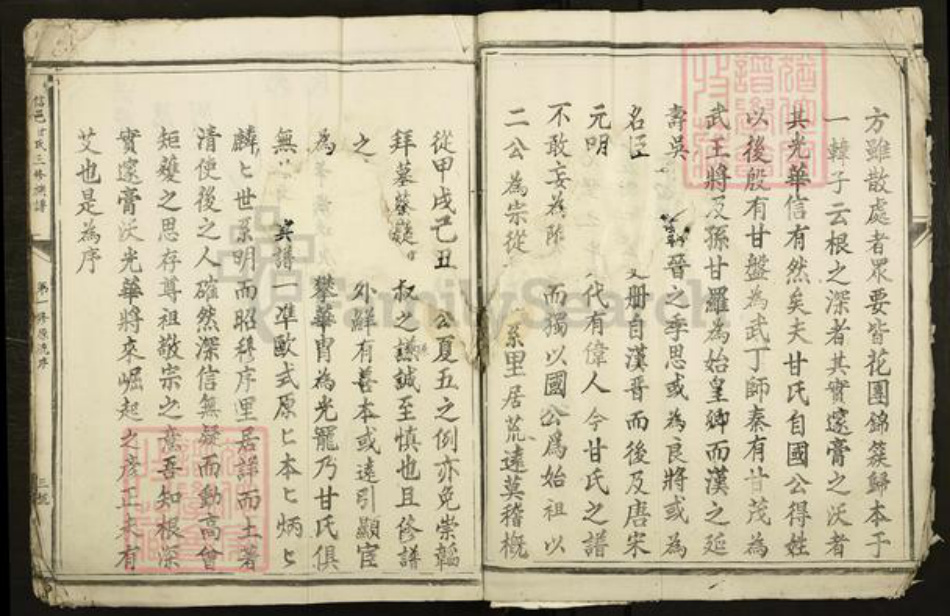 方雖散處者眾要皆花團錦簇歸本于
一韓子云根之深者其實邃膏之沃者
其光華信有然矣夫甘氏自國公得姓
以後殷有甘盤為武丁師秦有甘茂為
武王將及孫甘羅為始皇卿而漢之延
壽吳 晉之季思或為良將或為
名臣 册自漢晋而後及唐宋
元明 代有偉人今甘氏之譜
不敢妄為 而獨以國公爲始祖以
二公為宗從 系里居荒遠莫稽概
從甲戌己丑 公夏五之例亦免崇韜
拜墓 叔之譏誠至慎也且修譜
之 外鮮有善本或遠引顯宦
為 攀華胄為光寵乃甘氏俱
無 其譜一準歐式原ヒ本ヒ炳ヒ
麟ヒ世系明而昭穆序里居詳而土著
清使後之人確然深信無疑而動高曾
矩矱之思存尊祖敬宗之意吾知根深
實邃膏沃光華將來崛起之彥正未有
艾也是為序
信邑甘氏三修族譜
第一修原先序
三
FamilySearch